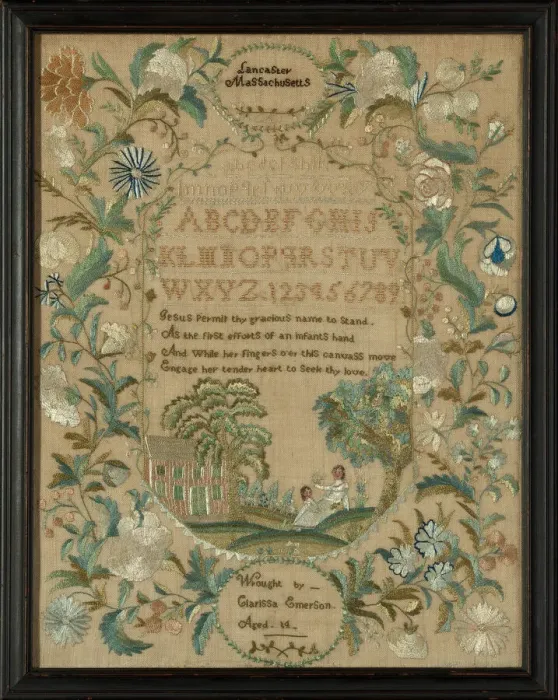 Lancaster
Massachusetts
ABCDEFGHIJ
KLMNOPQRSTUV
WXYZ.123456789
Jesus Permit thy gracious name to Stand.
As the first efforts of an infants hand
And While her fingers o'er this canvass move
Engage her tender heart to Seek thy love.
Wrought by —
Clarissa Emerson.
Aged. 14.